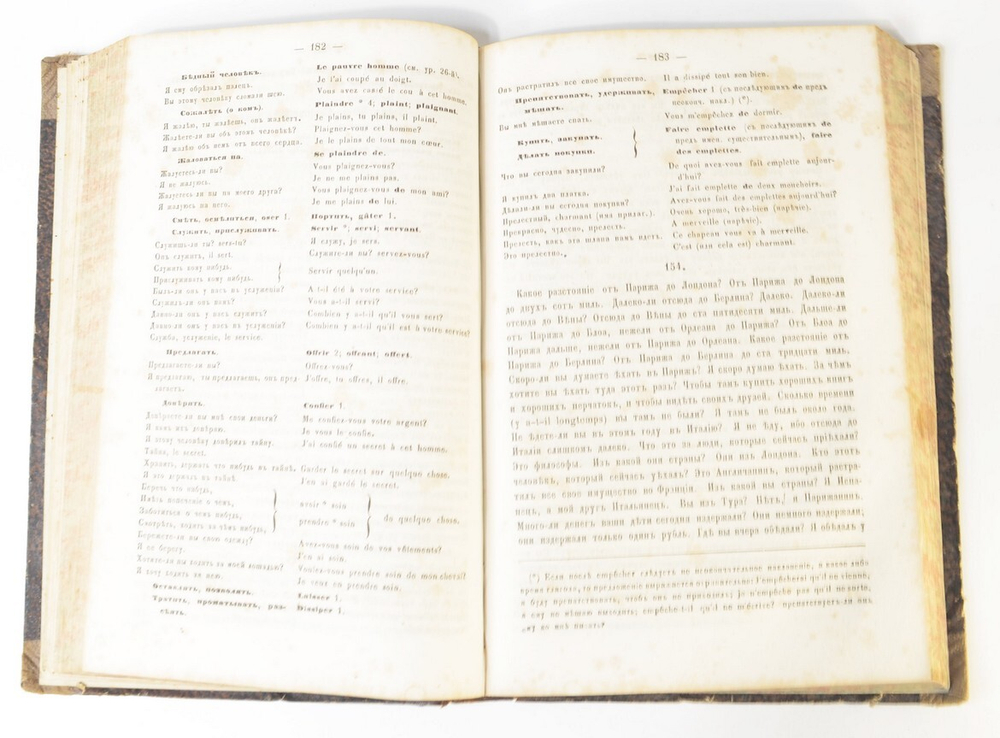 — 182 —
Бѣдный человѣкъ.
Le pauvre homme (см. ур. 26-й).
Я ему обрѣзалъ палецъ.
Je l'ai coupé au doigt.
Вы этому человѣку сломали шею.
Vous avez cassé le cou à cet homme.
Сожалѣть (о комъ).
Plaindre * 4; plaint; plaignant.
Я жалѣю, ты жалѣешь, онъ жалѣетъ.
Je plains, tu plains, il plaint.
Жалѣете-ли вы объ этомъ человѣкѣ?
Plaignez-vous cet homme?
Я жалѣю объ немъ отъ всего сердца.
Je le plains de tout mon cœur.
Жаловаться на.
Se plaindre de.
Жалуетесь-ли вы?
Vous plaignez-vous?
Я не жалуюсь.
Je ne me plains pas.
Жалуетесь-ли вы на моего друга?
Vous plaignez-vous de mon ami?
Я жалуюсь на него.
Je me plains de lui.
Смѣть, осмѣлиться, oser 1.
Портить, gâter 1.
Служить, прислуживать.
Servir *, servi; servant.
Служишь-ли ты? sers-tu?
Я служу, je sers.
Онъ служитъ, il sert.
Служите-ли вы? servez-vous?
Служить кому нибудь.
Прислуживать кому нибудь.
Servir quelqu'un.
Былъ-ли онъ у васъ въ услуженіи?
A-t-il été à votre service?
Служилъ-ли онъ вамъ?
Vous a-t-il servi?
Давно-ли онъ у васъ служитъ?
Combien y a-t-il qu'il vous sert?
Давно-ли онъ у васъ въ услуженіи?
Combien y a-t-il qu'il est à votre service?
Служба, услуженіе, le service.
Предлагать.
Offrir 2; offrant, offert.
Предлагаете-ли вы?
Offrez-vous?
Я предлагаю, ты предлагаешь, онъ предлагаетъ.
J'offre, tu offres, il offre.
Довѣрять.
Confier 1.
Довѣряете-ли вы мнѣ свои деньги?
Me confiez-vous votre argent?
Я вамъ ихъ довѣряю.
Je vous le confie.
Я этому человѣку довѣрилъ тайну.
J'ai confié un secret à cet homme.
Тайна, le secret.
Хранить, держать что нибудь въ тайнѣ.
Garder le secret sur quelque chose.
Я это держалъ въ тайнѣ.
J'en ai gardé le secret.
Беречь что нибудь,
Имѣть попеченіе о чемъ,
Заботиться о чемъ нибудь,
Смотрѣть, ходить за чѣмъ нибудь,
avoir * soin
prendre * soin
de quelque chose.
Бережете-ли вы свою одежду?
Avez-vous soin de vos vêtements?
Я ее берегу.
J'en ai soin.
Хотите-ли вы ходить за моей лошадью?
Voulez-vous prendre soin de mon cheval?
Я хочу ходить за нею.
Je veux en prendre soin.
Оставлять, позволять.
Laisser 1.
Тратить, проматывать, разсѣять.
Dissiper 1.
— 183 —
Онъ растратилъ все свое имущество.
Il a dissipé tout son bien.
Препятствовать, удерживать, мѣшать.
Empêcher 1 (съ послѣдующимъ de предъ неоконч. накл.) (*).
Вы мнѣ мѣшаете спать.
Vous m'empêchez de dormir.
Купить, закупать.
Дѣлать покупки.
Faire emplette (съ послѣдующимъ de предъ имен. существительнымъ), faire des emplettes.
Что вы сегодня закупили?
De quoi avez-vous fait emplette aujourd'hui?
Я купилъ два платка.
J'ai fait emplette de deux mouchoirs.
Дѣлали-ли вы сегодня покупки?
Avez-vous fait des emplettes aujourd'hui?
Прелестный, charmant (имя прилаг.).
Очень хорошо, très-bien (нарѣчіе).
Прекрасно, чудесно, прелесть.
A merveille (нарѣчіе).
Прелесть, какъ эта шляпа вамъ идетъ.
Ce chapeau vous va à merveille.
Это прелестно.
C'est (или cela est) charmant.
151.
Какое разстояніе отъ Парижа до Лондона? Отъ Парижа до Лондона
до двухъ сотъ миль. Далеко-ли отсюда до Берлина? Далеко. Далеко-ли
отсюда до Вѣны? Отсюда до Вѣны до ста пятидесяти миль. Дальше-ли
отъ Парижа до Блоа, нежели отъ Орлеана до Парижа? Отъ Блоа до
Парижа дальше, нежели отъ Парижа до Орлеана. Какое разстояніе отъ
Парижа до Берлина? Отъ Парижа до Берлина до ста тридцати миль.
Скоро-ли вы думаете ѣхать въ Парижъ? Я скоро думаю ѣхать. За чѣмъ
хотите вы ѣхать туда этотъ разъ? Чтобы тамъ купить хорошихъ книгъ
и хорошихъ перчатокъ, и чтобы видѣть своихъ друзей. Сколько времени
(y a-t-il longtemps) вы тамъ не были? Я тамъ не былъ около года.
Не ѣдете-ли вы въ этомъ году въ Италію? Я не ѣду, ибо отсюда до
Италіи слишкомъ далеко. Что это за люди, которые сейчасъ пріѣхали?
Это философы. Изъ какой они страны? Они изъ Лондона. Кто этотъ
человѣкъ, который сейчасъ уѣхалъ? Это Англичанинъ, который растратилъ все свое имущество во Франціи. Изъ какой вы страны? Я Испанецъ, а мой другъ Итальянецъ. Вы изъ Тура? Нѣтъ, я Парижанинъ.
Много-ли денегъ ваши дѣти сегодня издержали? Они немного издержали;
они издержали только одинъ рубль. Гдѣ вы вчера обѣдали? Я обѣдалъ у
(*) Если послѣ empêcher слѣдуетъ не неокончательное наклоненіе, а какое либо
время глагола, то предложеніе выражается отрицательно: